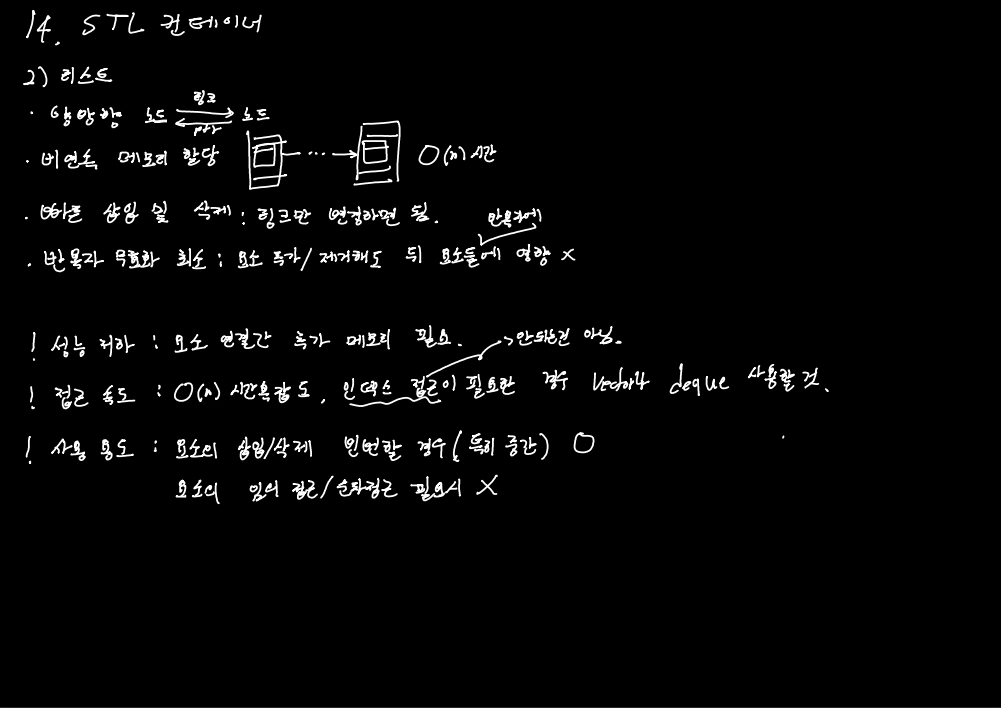 14. STL 컨테이너
2) 리스트
· 양방향 노드 링크 ptr 노드
· 비연속 메모리 할당 ... O(n) 시간
· 빠른 삽입 및 삭제 : 링크만 연결하면 됨.
반복자에
· 반복자 무효화 최소 : 요소 추가/제거해도 뒤 요소들에 영향 X
! 성능 저하 : 요소 연결간 추가 메모리 필요. → 안되는건 아님.
! 접근 속도 : O(n) 시간복잡도, 인덱스 접근이 필요한 경우 vector나 deque 사용할 것.
! 사용 용도 : 요소의 삽입/삭제 빈번할 경우(특히 중간) O
요소의 임의 접근/순차접근 필요시 X